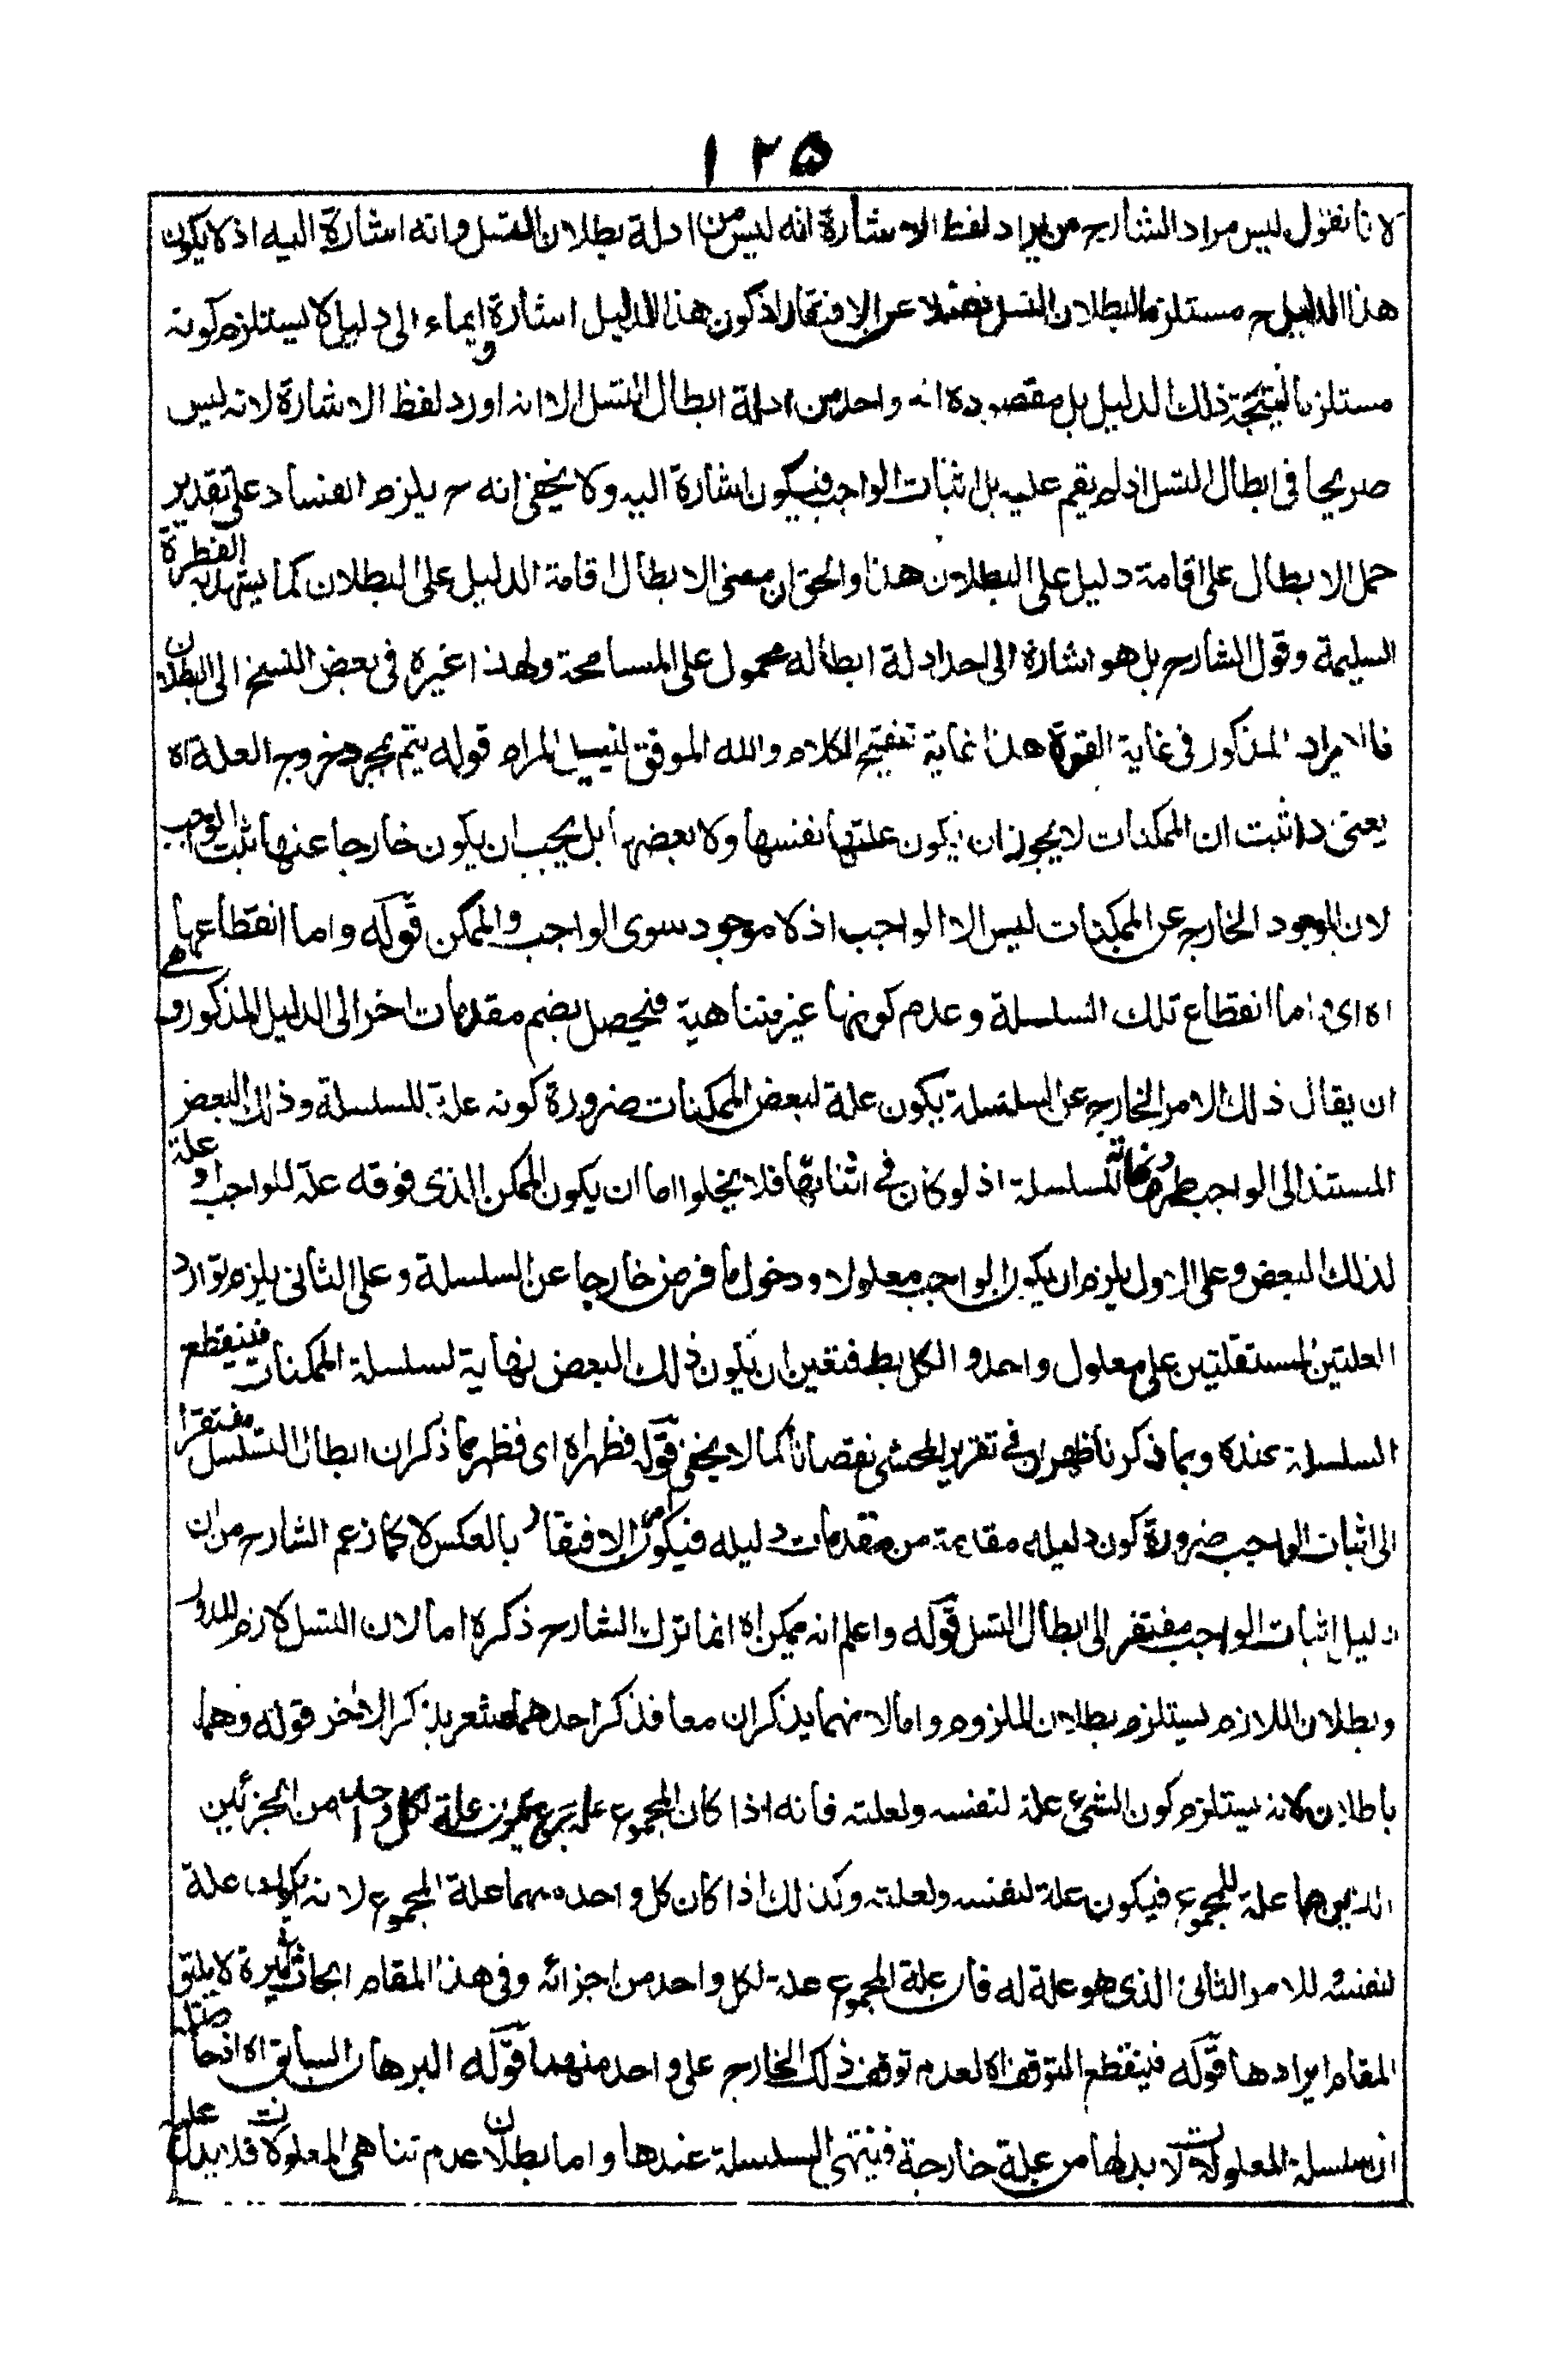 ١٢٥
لانا نقول ليس مراد الشارح من ايراد لفظ الاشارة انه ليس من ادلة بطلان التسل وانه اشارة اليه اذ لا يكون
هذا الدليل ح مستلزما لبطلان التسل فضلا عن الافتقار اذ كون هذا الدليل اشارة وايماء الى دليل لا يستلزم كونه
مستلزما لنتيجة ذلك الدليل بل مقصوده انه واحد من ادلة ابطال التسل الا انه اورد لفظ الاشارة لانه ليس
صريحا فى ابطال التسل اذ لم يقم عليه بل اثبات الواجب فيكون اشارة اليه ولا يخفى انه ح يلزم الفساد على تقدير
حمل الابطال على اقامة دليل على البطلان هذا والحق ان معنى الابطال اقامة الدليل على البطلان كما يشهد به الفطرة
السليمة وقول الشارح بل هو اشارة الى احد ادلة ابطاله محمول على المسامحة ولهذا غيره فى بعض النسخ الى البطلان
فالايراد المذكور فى غاية القوة هذا غاية تنقيح الكلام والله الموفق لتيسيل المرام قوله يتم بمجرد خروج العلة اه
يعنى اذا ثبت ان الممكنات لا يجوز ان يكون علتها نفسها ولا بعضها بل يجب ان يكون خارجا عنها ثبت الواجب
لان الموجود الخارج عن الممكنات ليس الا الواجب اذ لا موجود سوى الواجب والممكن قوله واما انقطاعها
اه اى واما انقطاع تلك السلسلة وعدم كونها غير متناهية فيحصل بضم مقدمات اخر الى الدليل المذكور وهو
ان يقال ذلك الامر الخارج عن السلسلة يكون علة لبعض الممكنات ضرورة كونه علة للسلسلة وذلك البعض
المستند الى الواجب طرف للسلسلة اذ لو كان فى اثنائها فلا يخلوا اما ان يكون الممكن الذى فوقه علة للواجب او علة
لذلك البعض وعلى الاول يلزم ان يكون الواجب معلولا ودخول ما فرض خارجا عن السلسلة وعلى الثانى يلزم توارد
العلتين المستقلتين على معلول واحد والكل بط فتعين ان يكون ذلك البعض نهاية لسلسلة الممكنات فينقطع
السلسلة عنده وبما ذكرنا ظهر ان فى تقرير المحشى نقصانا كما لا يخفى قوله فظهر اه اى فظهر مما ذكر ان ابطال التسلسل مفتقرا
الى اثبات الواجب ضرورة كون دليله مقدمة من مقدمات دليله فيكون امر الافتقار بالعكس لا كما زعم الشارح من ان
دليل اثبات الواجب مفتقر الى ابطال التسل قوله واعلم انه يمكن اه انما ترك الشارح ذكره اما لان التسل لازم للدور
وبطلان اللازم يستلزم بطلان الملزوم واما لانهما يذكران معا فذكر احدهما مشعر بذكر الاخر قوله وهما
باطلان لانه يستلزم كون الشىء علة لنفسه ولعلته فانه اذا كان المجموع علة يكون علة لكل واحد من الجزئين
الذين هما علة للمجموع فيكون علة لنفسه ولعلته وكذلك اذا كان كل واحد منهما علة المجموع لانه يكون علة
لنفسه للامر الثانى الذى هو علة له فان علة المجموع علة لكل واحد من اجزائه وفى هذا المقام ابحاث كثيرة لا يليق
المقام ايرادها قوله فينقطع التوقف اه لعدم توقف ذلك الخارج على واحد منهما قوله البرهان السابق اه اذ حاصله
ان سلسلة المعلولات لا بد لها من علة خارجة فينتهى السلسلة عندها واما بطلان عدم تناهى المعلولات فلا يدل عليه